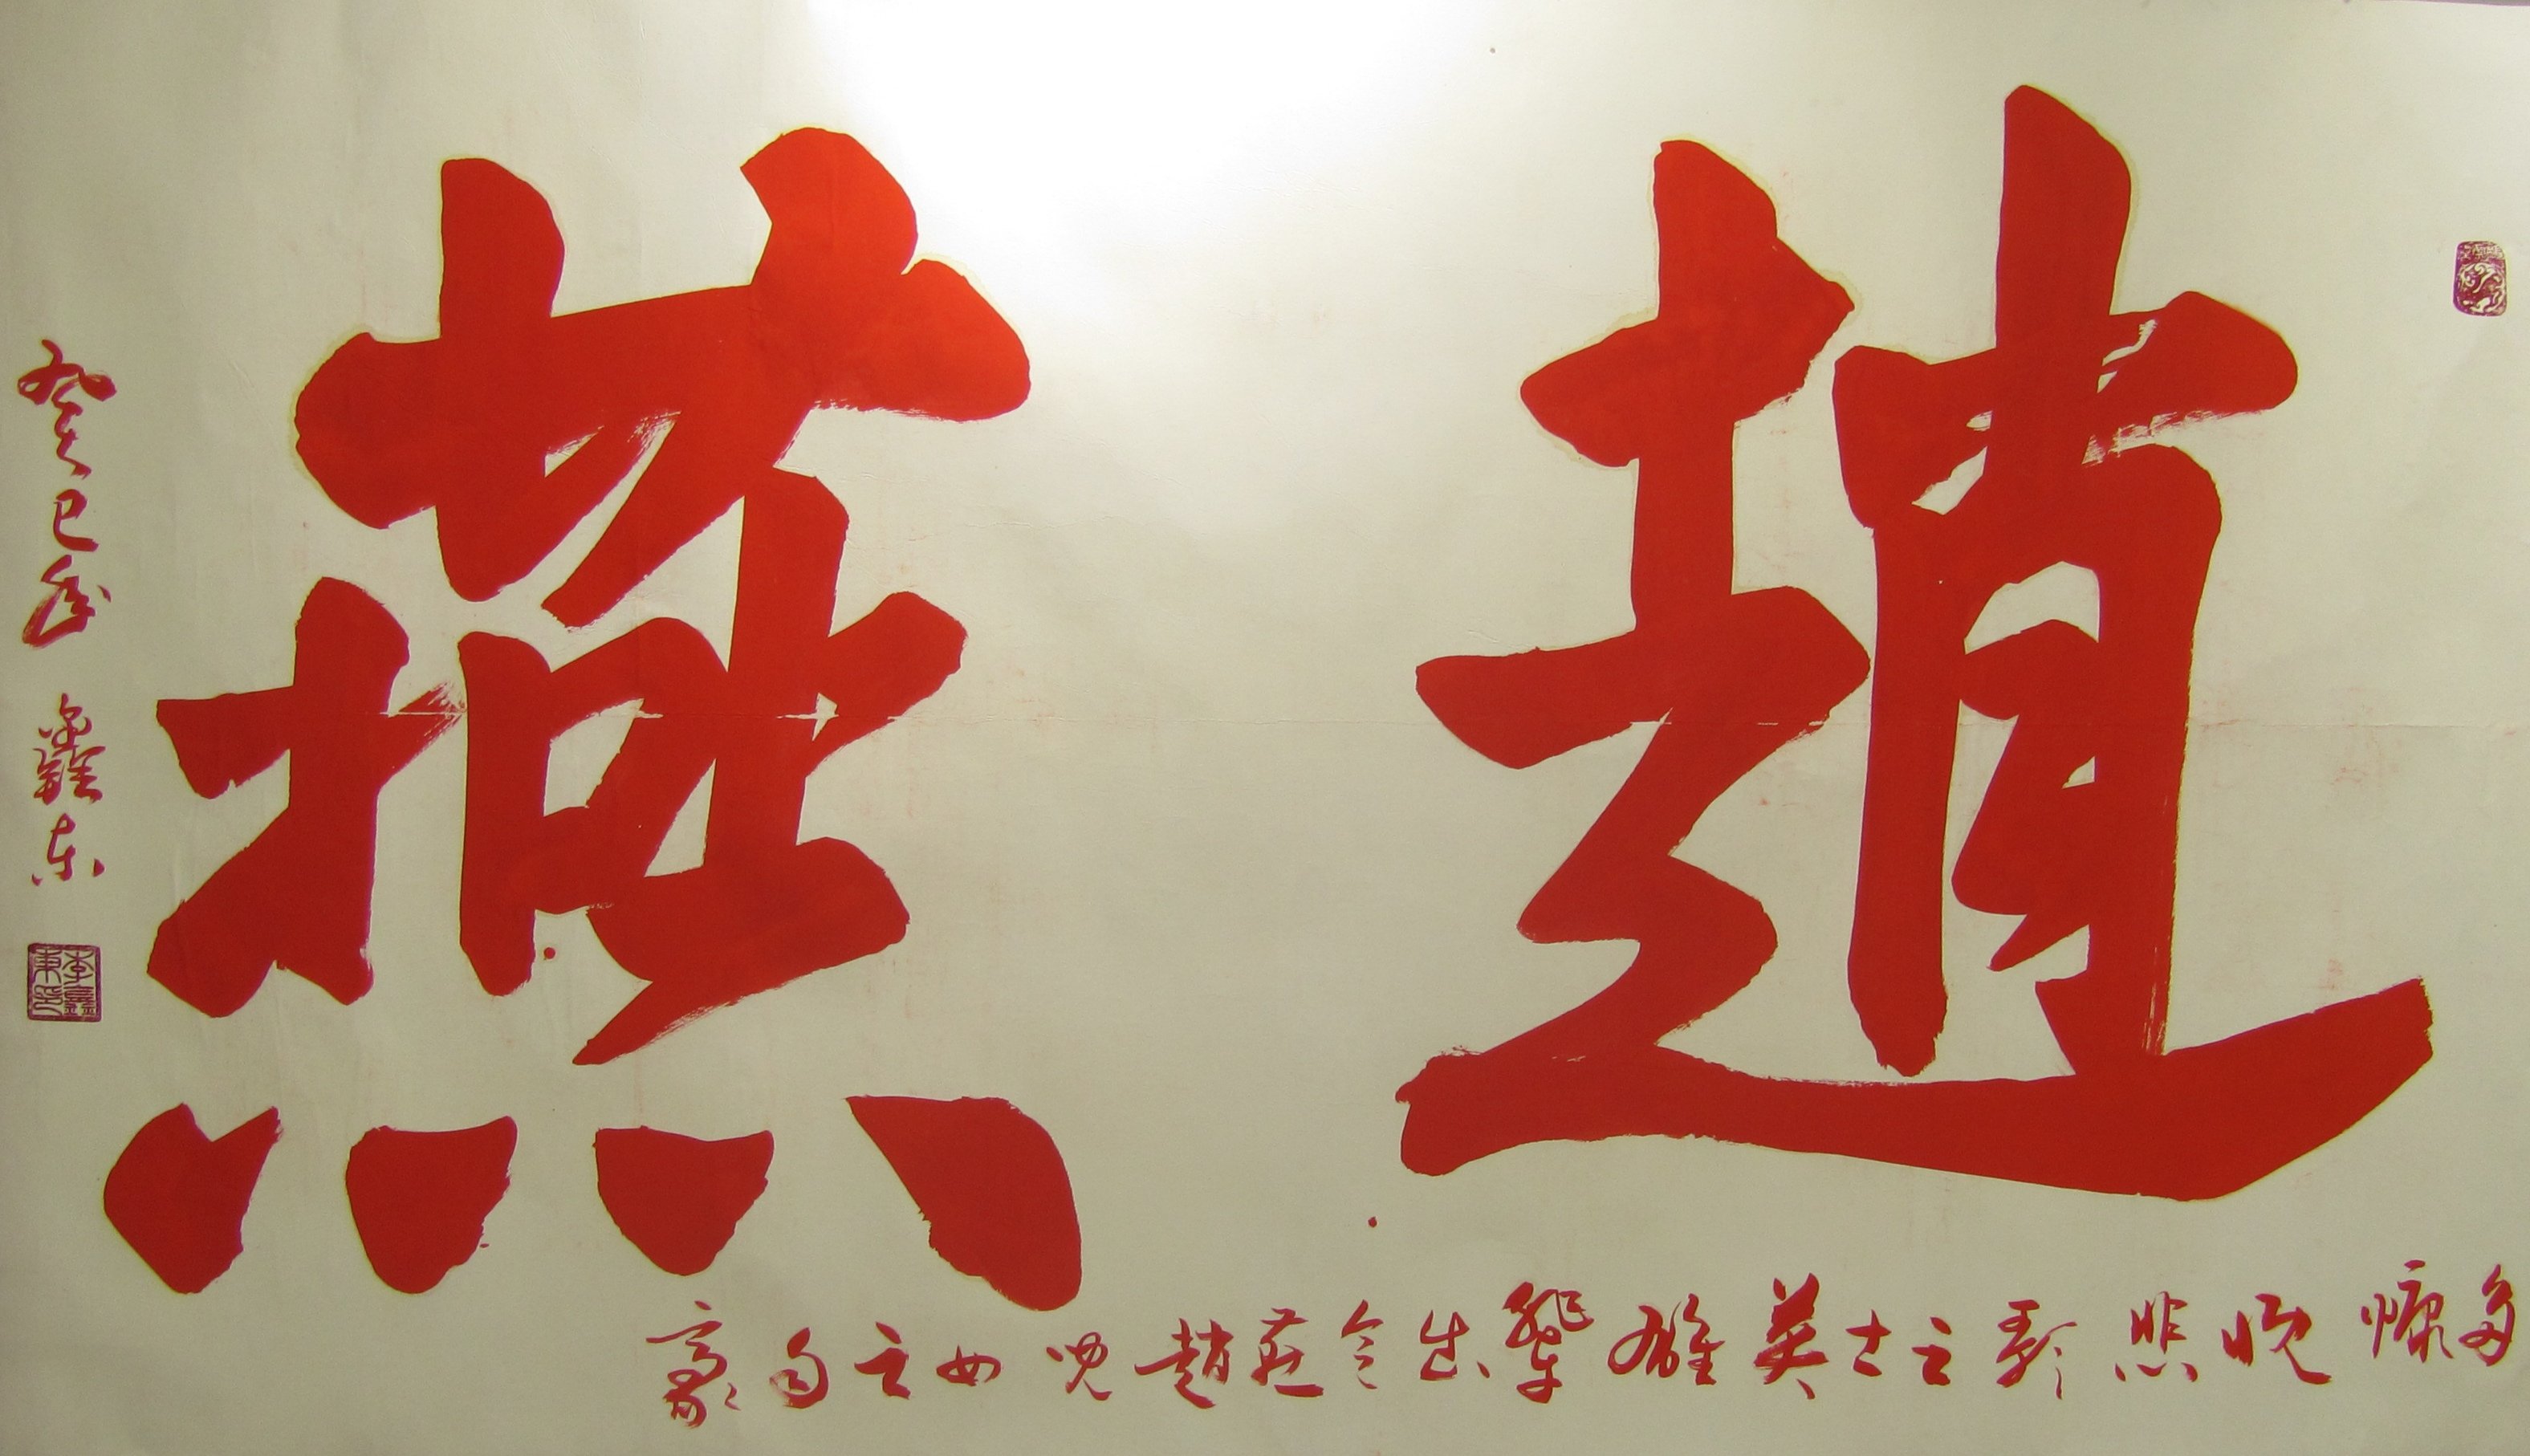 趙燕
多慷慨悲歌之士英雄輩出令燕趙兒女之自豪
癸巳年 鑫東
李鑫東印